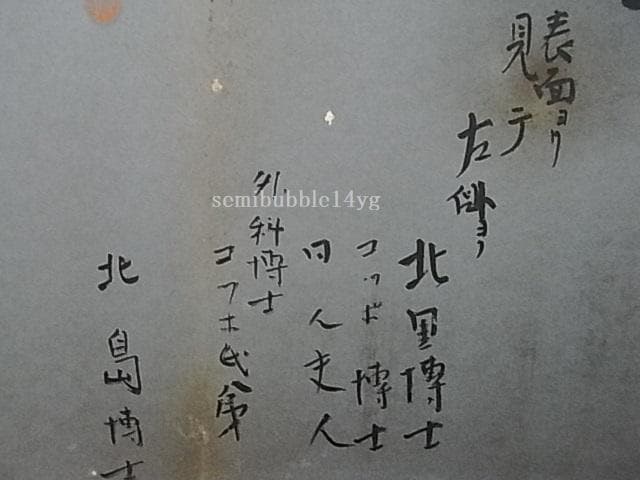 表面ヨリ
見テ
左側ヨリ
北里博士
コッホ博士
同人夫人
外科博士
コッホ氏弟
北島博士
semibubble14yg